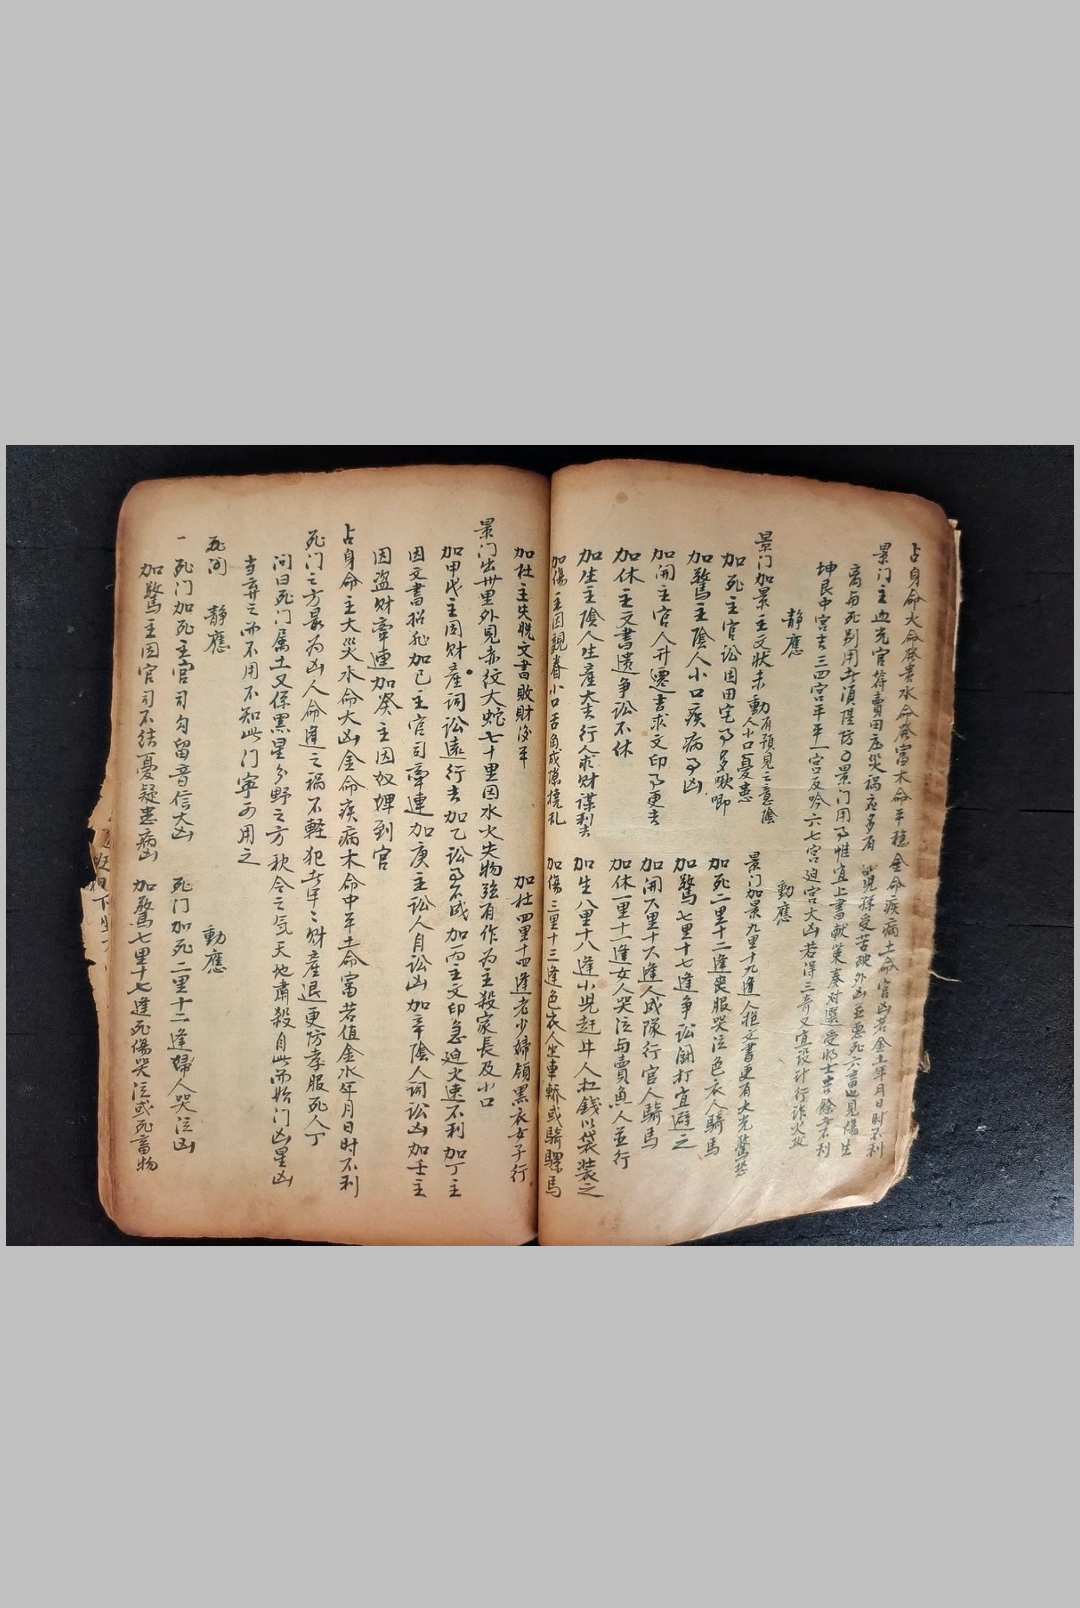 占身命火命發貴水命發富木命平穩金命疾病土命官凶若金土年月日時不利
景门主血光官符賣田庄災祸应多有 児孫受苦
离与死别用者須隄防〇景门用事惟宜上書献策
坤艮中宫吉三四宫平平一宫反吟六七宫迫宫大凶若得三奇又宜設計行詐火攻
静應
動應
景门加景主文状未動有預見之意陰人小口憂患
景门加景九里十九逢人抱文書更有火光驚恐
加死主官訟因田宅事多啾唧
加死二里十二逢喪服哭泣色衣人騎馬
加驚主陰人小口疾病事凶
加驚七里十七逢争訟鬪打宜避之
加開主官人升遷吉求文印事更吉
加開六里十六逢人成隊行官人騎馬
加休主文書遺争訟不休
加休一里十一逢女人哭泣与賣魚人並行
加生主陰人生産大吉行人求財謀利吉
加生八里十八逢小児赶牛人扛錢以袋装之
加傷主因親眷小口舌角成隙撓乱
加傷三里十三逢色衣人坐車轎或騎騾馬
加杜主失脱文書敗財後平
加杜四里十四逢老少婦領黑衣女子行
景门出卅里外見赤纹大蛇七十里因水火失物強有作为主殺家長及小口
加甲戊主因財産詞訟遠行吉加乙訟事不成加丙主文印急迫火速不利加丁主
因文書招非加己主官司牽連加庚主訟人自訟凶加辛陰人詞訟凶加壬主
因盗財牽連加癸主因奴婢到官
占身命主大災水命大凶金命疾病木命中平土命富若值金水年月日時不利
死门之方最为凶人命逢之禍不輕犯者年年財産退更防孝服死人丁
问曰死门属土又係黑星分野之方秋令之気天地肅殺自此而始门凶星凶
当弃之而不用不知此门寧可用之
死门 静應
動應
一 死门加死主官司勾留音信大凶
死门加死二里十二逢婦人哭泣凶
加驚主因官司不结憂疑患病凶
加驚七里十七逢死傷哭泣或死畜物